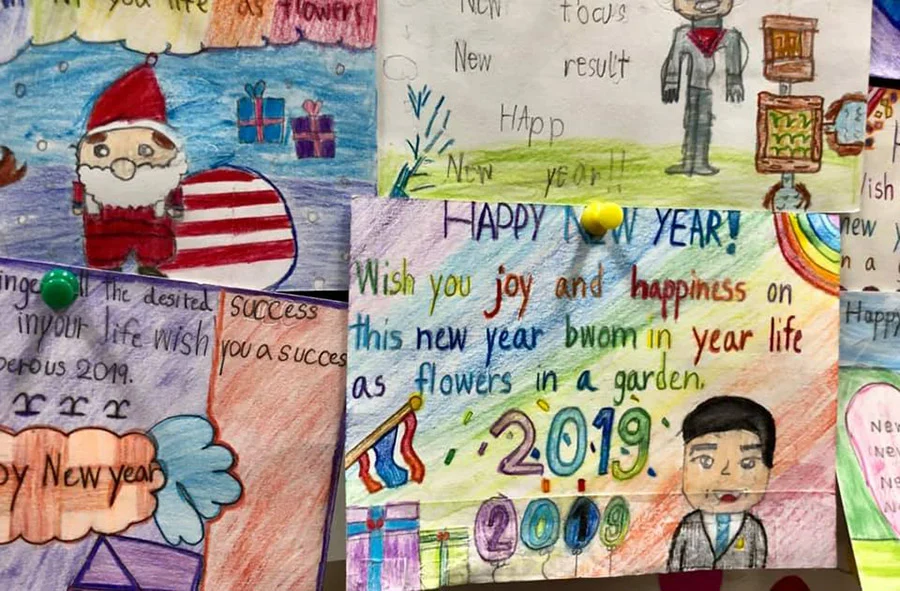 in you life as flowers
New focus
New result
HApp
New year!!
HAPPY NEW YEAR!
Wish you joy and happiness on
this new year bwom in year life
as flowers in a garden.
2019
2019
the desited
inyour life wish
perous 2019.
success
you a succes
py New year
Wish
new y
n a
Happy
New
New